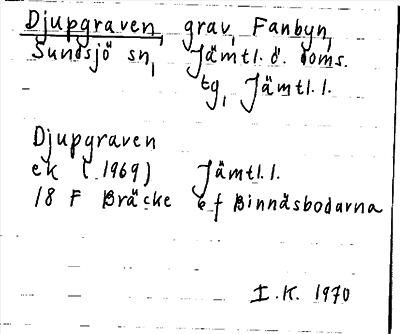 Djupgraven, grav, Fanbyn,
Sundsjö sn, Jämtl. ö. doms.
tg, Jämtl. l.
Djupgraven
ek (1969) Jämtl. l.
18 F Bräcke e f Binnäsbodarna
I. K. 1970